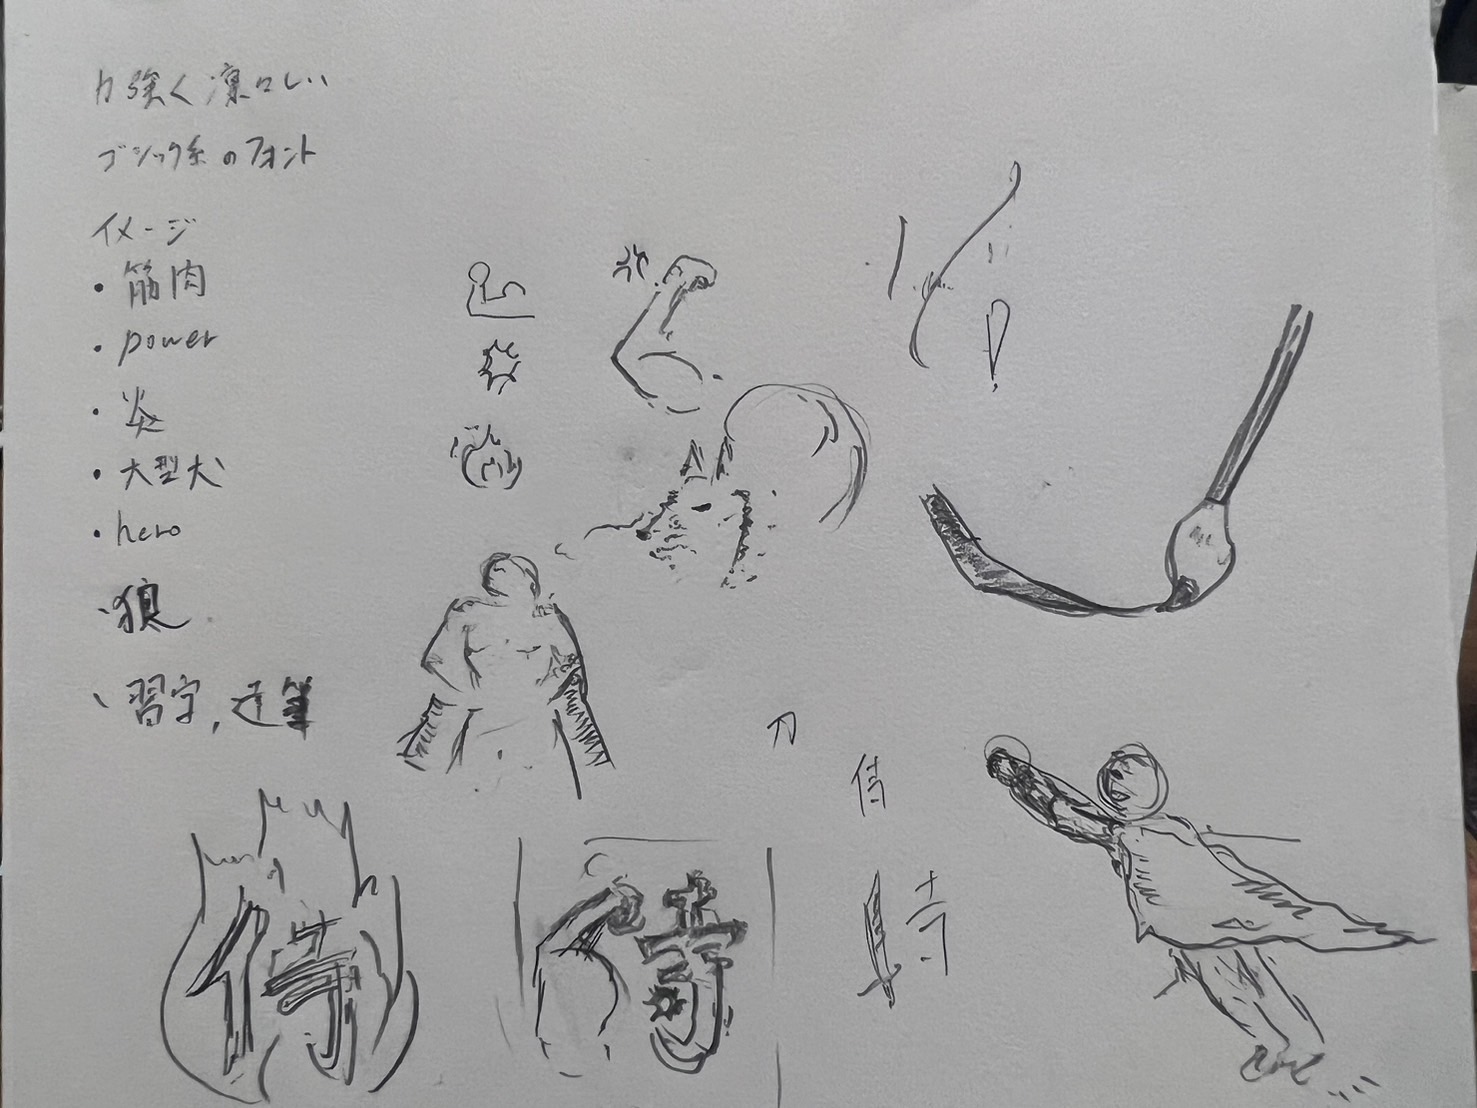 力強く凛々しい
ゴシック系のフォント
イメージ
・筋肉
・power
・炎
・大型犬
・hero
・狼
・習字,達筆
刀
侍
侍
侍
寺